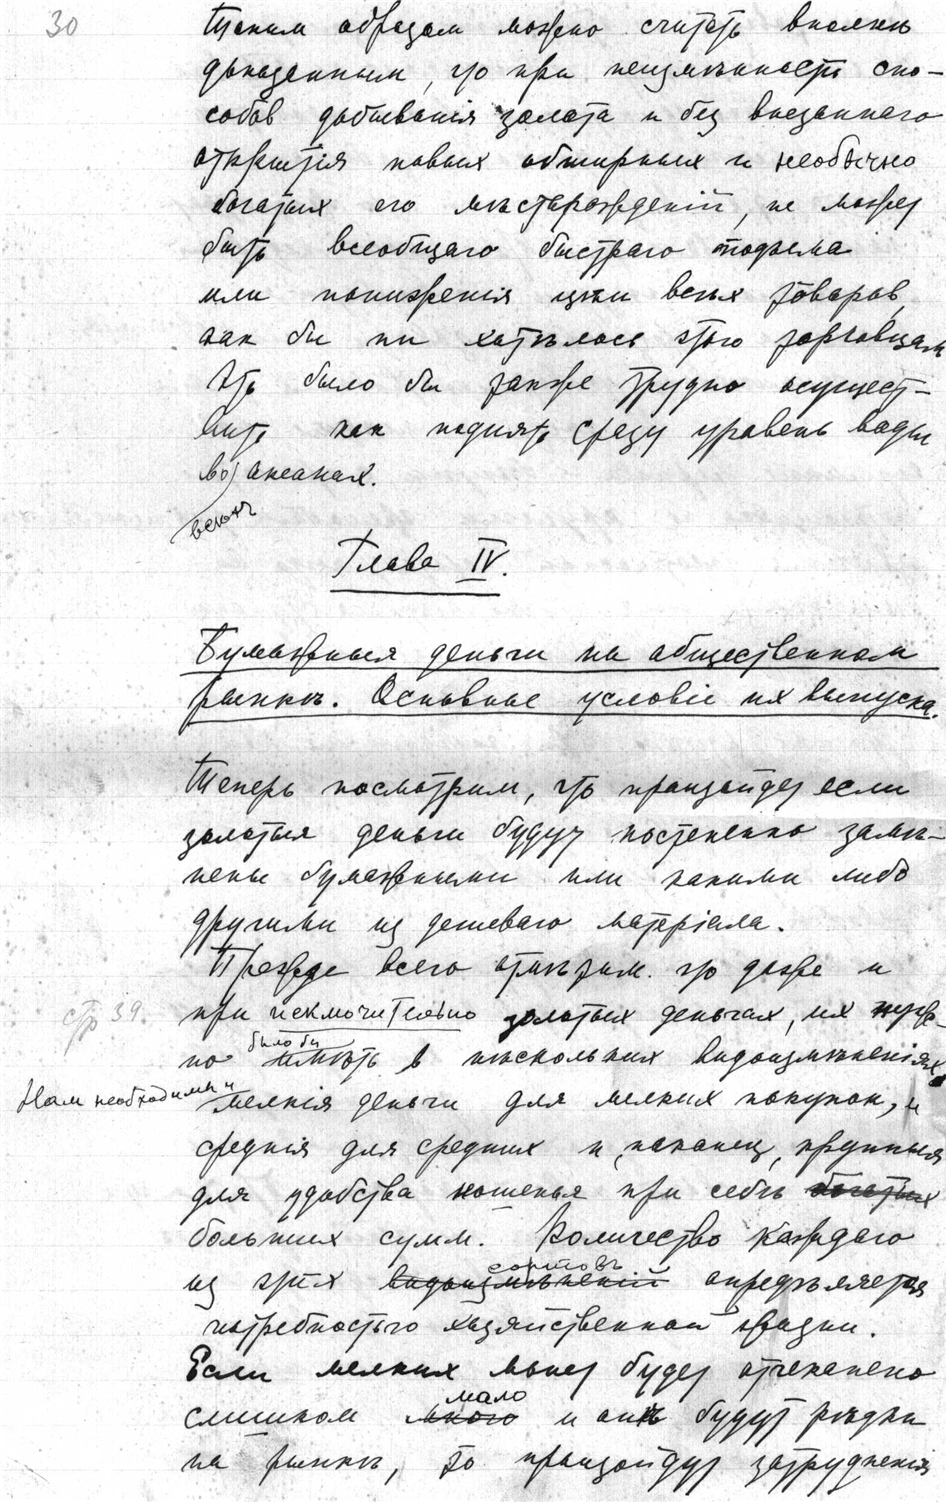 30
Таким образом можно считать вполнѣ
доказанным, что при неизмѣнности спо-
собов добыванія золота и без внезапнаго
открытія новых обширных и необычно
богатых его мѣсторождений, не может
быть всеобщаго быстраго подъема
или пониженія цѣн всѣх товаров,
как бы ни хотѣлось этого торговцам
Это было бы также трудно осущест-
вить как поднять сразу уровень воды
во океанах.
всѣх
Глава IV.
Бумажныя деньги на общественном
рынкѣ. Основные условіе их выпуска.
Теперь посмотрим, что произойдет если
золотыя деньги будут постепенно замѣ-
нены бумажными или какими либо
другими из дешеваго матеріала.
Прежде всего отмѣтим что даже и
стр 39.
при исключительно золотых деньгах, их нуж-
было бы
но имѣть в нѣскольких видоизмѣненіях.
Нам необходимы и
мелкія деньги для мелких покупок, и
среднія для средних и, наконец, крупныя
для удобства ношенья при себѣ богатых
больших сумм. Количество каждаго
сортовъ
из этих видоизмѣненій опредѣляется
потребностью хозяйственной жизни.
Если мелких монет будет отчеканено
мало
слишком много и онѣ будут рѣдки
на рынкѣ, то произойдут затрудненія